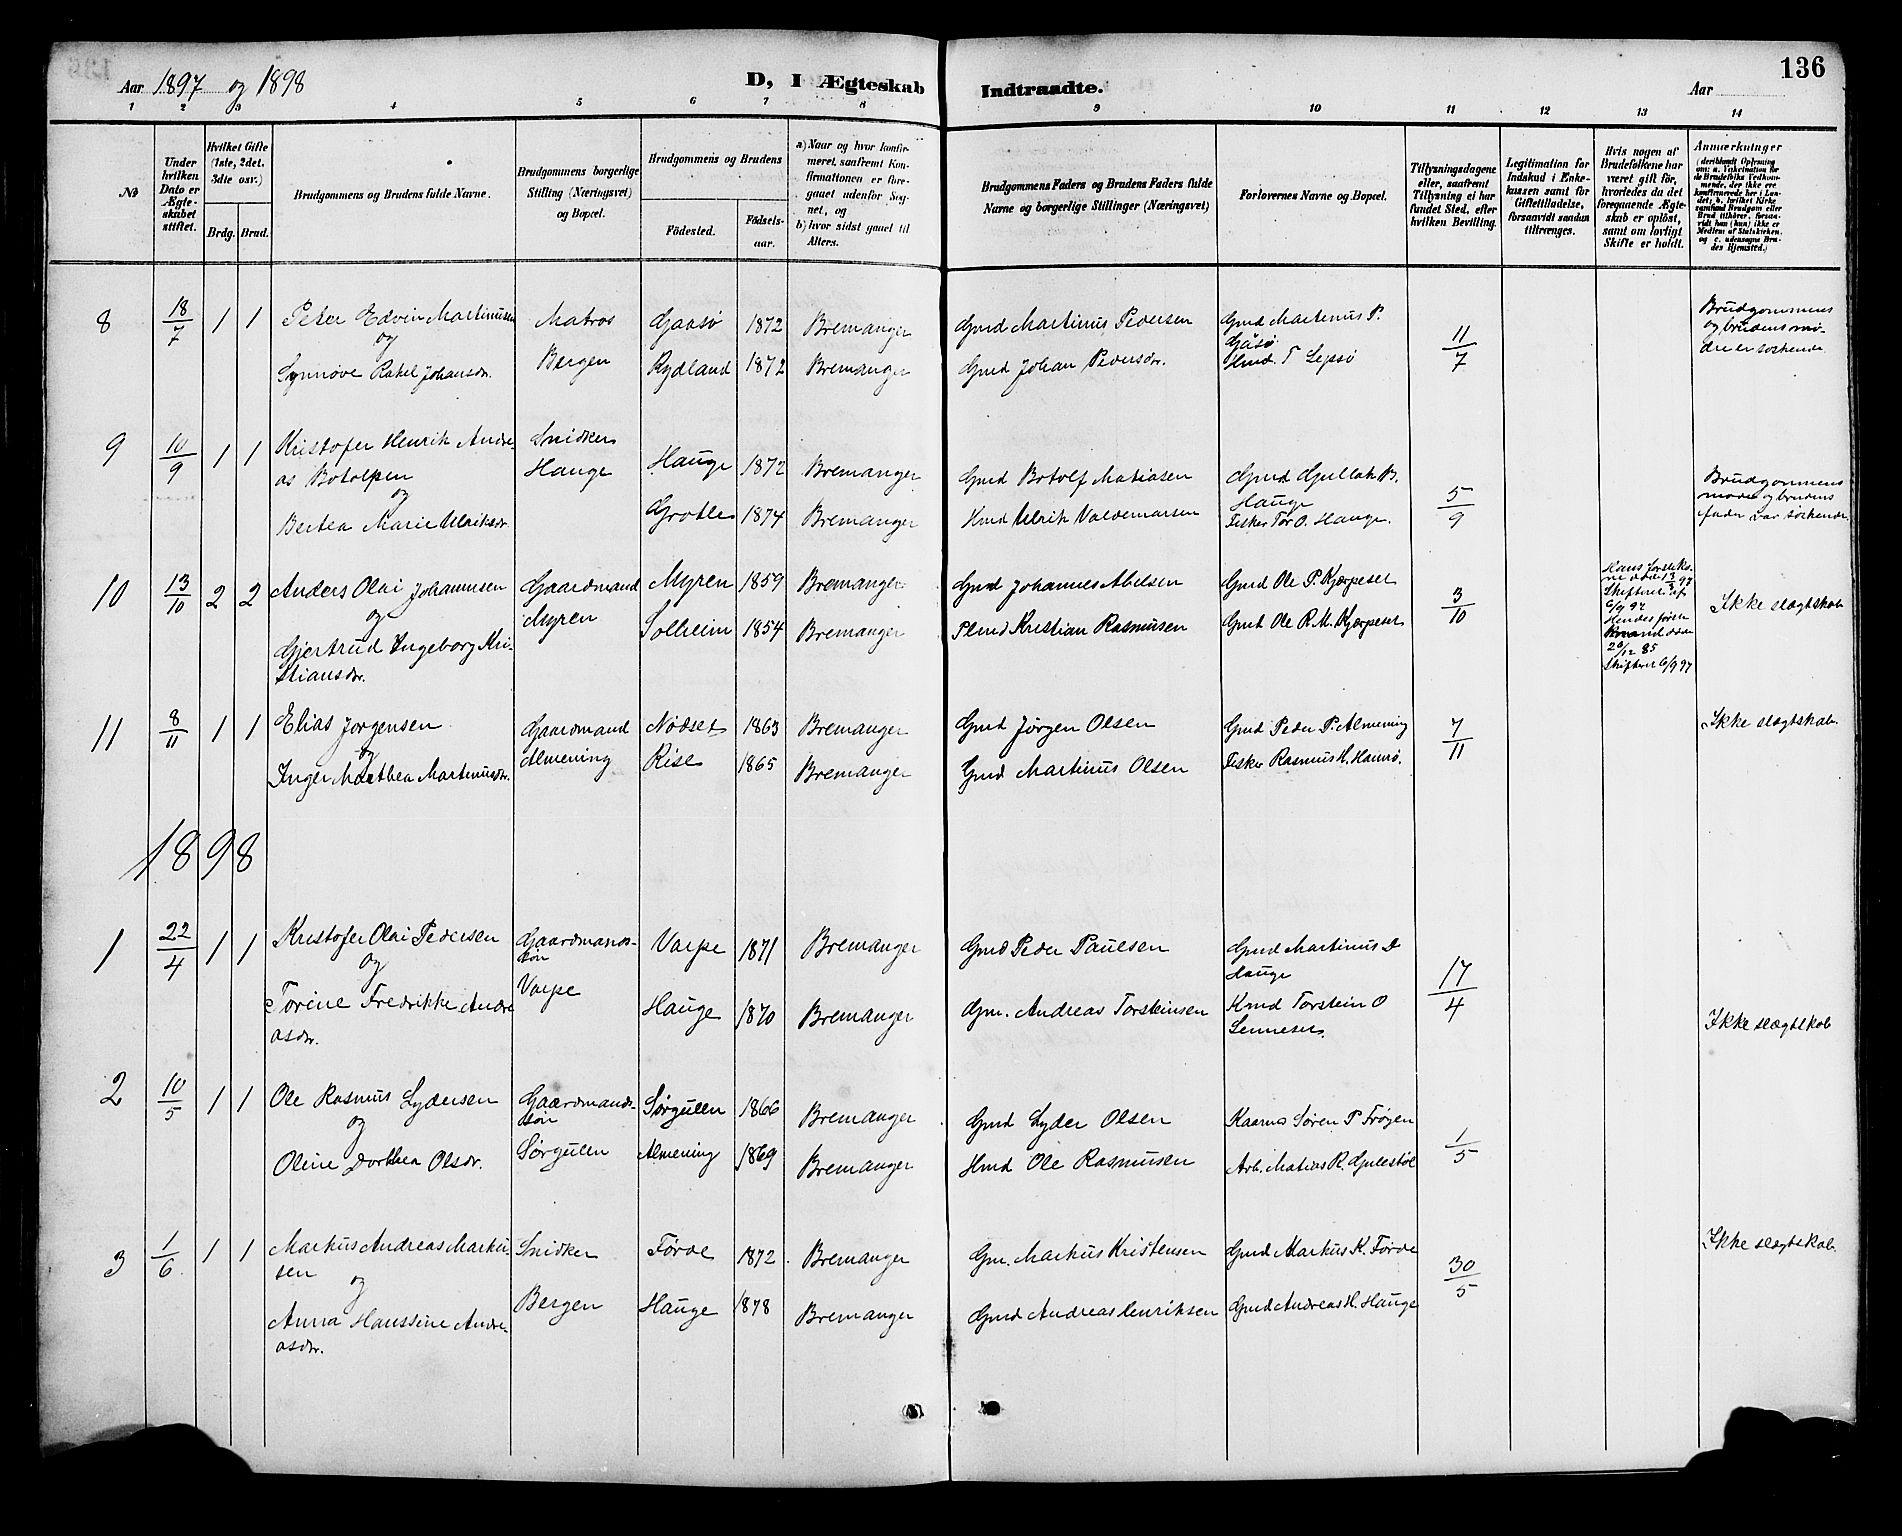 136
Aar 1897 og 1898
D, I Ægteskab Indtraadte.
Aar
1 2 3 4 5 6 7 8 9 10 11 12 13 14
No
Under hvilken Dato er Ægteskabet stiftet.
Hvilket Gifte (1ste, 2det, 3die osv.)
Brdg. Brud.
Brudgommens og Brudens fulde Navne.
Brudgommens borgerlige Stilling (Næringsvei) og Bopæl.
Brudgommens og Brudens
Fødested.
Fødselsaar.
a) Naar og hvor konfirmeret, saafremt Konfirmationen er foregaaet udenfor Sognet, og
b) hvor sidst gaaet til Alters.
Brudgommens Faders og Brudens Faders fulde Navne og borgerlige Stillinger (Næringsvei)
Forlovernes Navne og Bopæl.
Tillysningsdagene eller, saafremt Tillysning ei har fundet Sted, efter hvilken Bevilling.
Legitimation for Indskud i Enkekassen samt for Giftetilladelse, forsaavidt saadan tiltrænges.
Hvis nogen af Brudefolkene har været gift før, hvorledes da det foregaaende Ægteskab er opløst, samt om lovligt Skifte er holdt.
Anmærkninger
8 18/7 1 1 Peter Edvin Martinussen Matros Gaasø 1872 Bremanger Gmd Martinus Pedersen Gmd Martinus P. Gåsø 11/7 Brudgommens og brudens mødre er søskende.
og
Synnøve Rakel Johansdr. Bergen Rydland 1872 Bremanger Gmd Johan Pedersdr. Hmd. T Lejsø
9 10/9 1 1 Kristofer Henrik Andreas Botolpen Snidker Hauge Hauge 1872 Bremanger Gmd Botolf Matiasen Gmd Gullak B. Hauge 5/9 Brudgommens moder og brudens fader var søskende.
og
Bertea Marie Ulriksdr Grotle 1874 Bremanger Hmd Ulrik Valdemarsen Fisker Tor O. Hauge.
10 13/10 2 2 Anders Olai Johannesen Gaardmand Myren 1859 Bremanger Gmd Johannes Abelsen Gmd Ole P. Kjerpeset 3/10 Ikke slægtskab
og Myren
Gjertrud Ingeborg Kristiansdr. Solheim 1854 Bremanger Plmd Kristian Rasmusen Gmd Ole R. M. Kjerpeset
11 8/11 1 1 Elias Jørgensen Gaardmand Nødset 1863 Bremanger Gmd Jørgen Olsen Gmd Peder P. Almening 7/11 Ikke slægtskab.
og
Inger Marthea Martinusdr. Almening Rise 1865 Bremanger Gmd Martinus Olsen Fisker Rasmus H. Hamsø.
1898
1 22/4 1 1 Kristofer Olai Pedersen Gaardmandssøn Varpe 1871 Bremanger Gmd Peder Paulsen Gmd Martinus D Hauge 17/4
og Varpe
Torine Fredrikke Andreasdr. Hauge 1870 Bremanger Gm. Andreas Torsteinsen Kmd Torstein O Senneset. Ikke slægtskab
2 10/5 1 1 Ole Rasmus Lydersen Gaardmandssøn Sørgulen 1866 Bremanger Gmd Lyder Olsen Kaarm. Søren P Frøyen 1/5
og
Oline Dorthea Olsdr. Sørgulen Almening 1869 Bremanger Hmd Ole Rasmusen Arb. Matias R. Gulestøl
3 1/6 1 1 Markus Andreas Markusen Snidker Førde 1872 Bremanger Gm. Markus Kristensen Gmd Markus K. Førde 30/5 Ikke slægtskab.
og
Anna Hanssine Andreasdr. Bergen Hauge 1878 Bremanger Gmd Andreas Henriksen Gmd Andreas H. Hauge